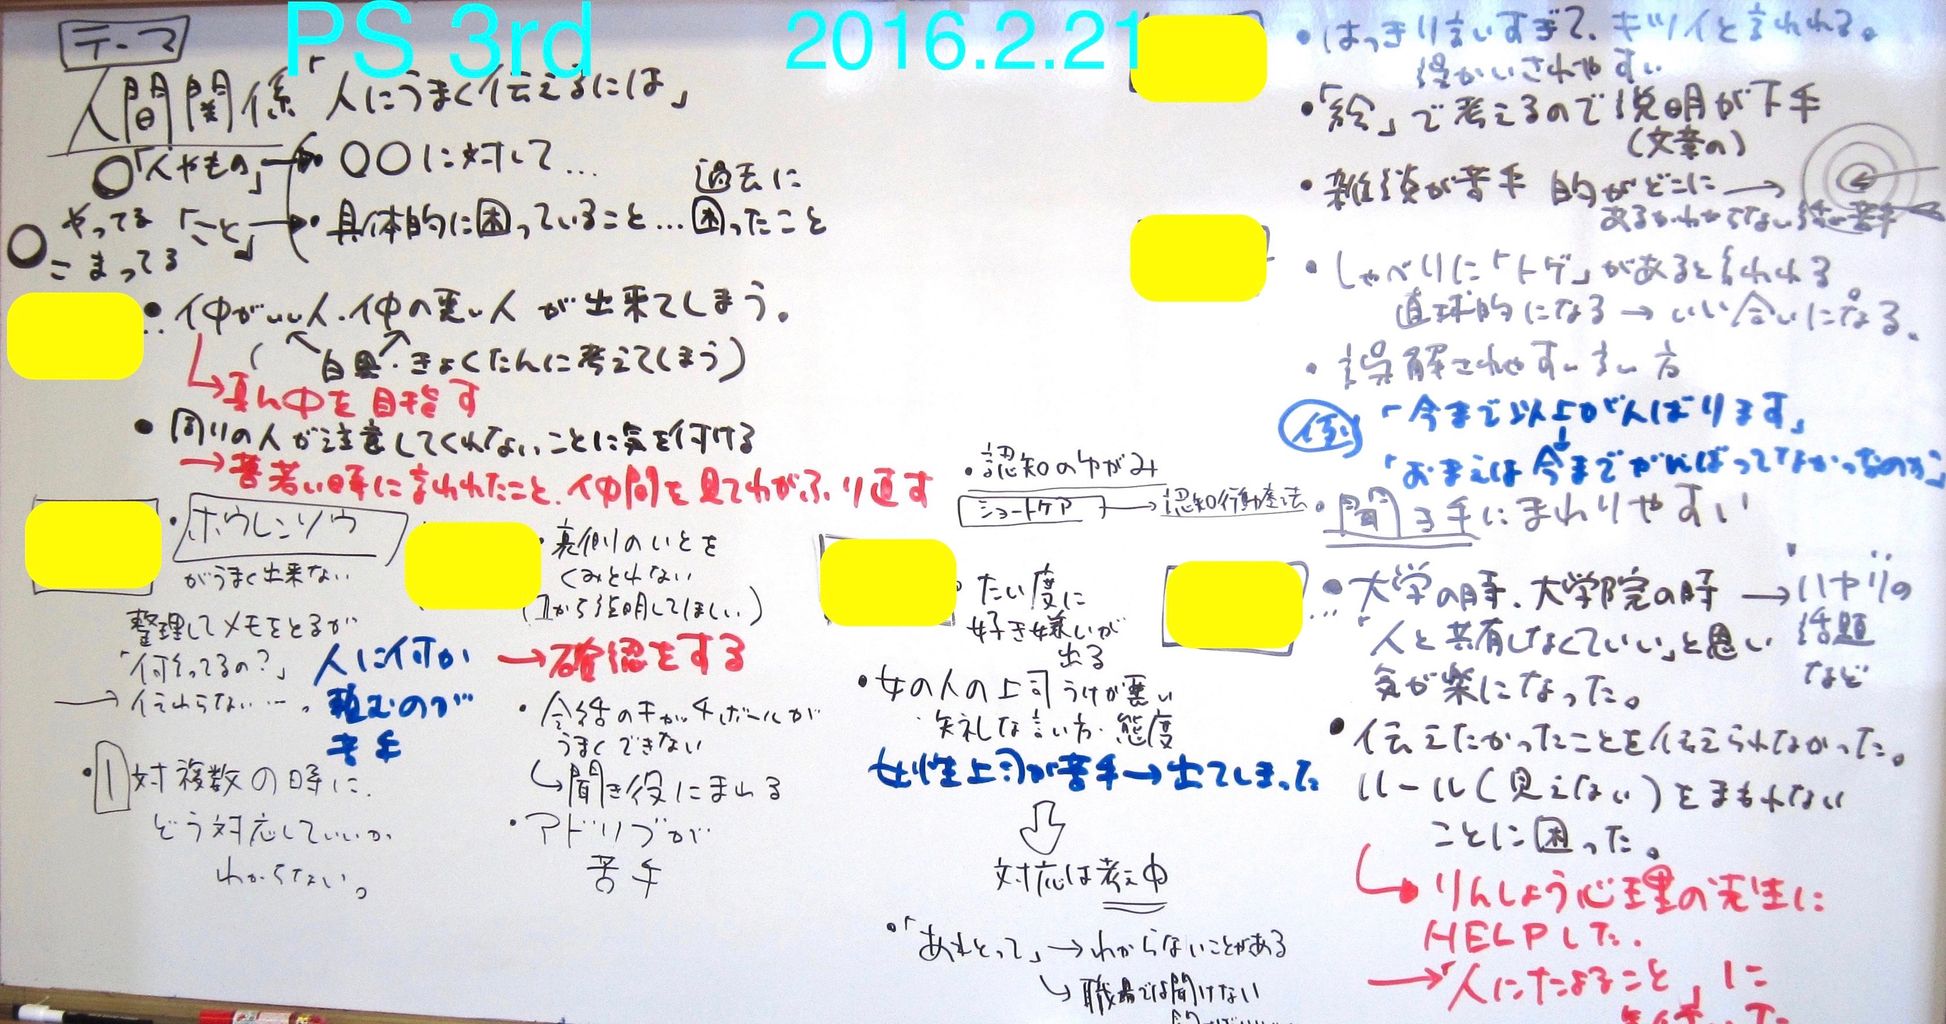 PS 3rd 2016.2.21
テーマ
人間関係「人にうまく伝えるには」
「人やもの」→ ○○に対して…
やってる「こと」→・具体的に困っていること…困ったこと
過去に
こまってる
・仲がいい人・仲の悪い人が出来てしまう。
(白黒・きょくたんに考えてしまう)
→真ん中を目指す
・周りの人が注意してくれないことに気を付ける
→昔若い時に言われたこと、仲間を見てわがふり直す
・ホウレンソウ
がうまく出来ない
整理してメモをとるが
「何言ってるの?」
→伝わらない…。
人に何か
頼むのが
苦手
・1対複数の時に、
どう対応していいか
わからない。
・裏側のいとを
くみとれない
(1から説明してほしい)
→確認をする
・会話のキャッチボールが
うまくできない
→聞き役にまわる
・アドリブが
苦手
・認知のゆがみ
ショートケア→認知行動療法
・たい度に
好き嫌いが
出る
・女の人の上司うけが悪い
・失礼な言い方・態度
女性上司が苦手→出てしまった
対応は考え中
・「あれとって」→わからないことがある
→職場では聞けない
・はっきり言いすぎて、キツイと言われる。
誤かいされやすい
・「絵」で考えるので説明が下手
(文章の)
・雑談が苦手 的がどこに→
あるかわからない話が苦手
・しゃべりに「トゲ」があると言われる
直球的になる→いい合いになる。
・誤解されやすい言い方
例「今まで以上がんばります」
↓
「おまえは今までがんばってなかったのか」
・聞き手にまわりやすい
・大学の時、大学院の時→ハヤリの
話題
など
「人と共有しなくていい」と思い
気が楽になった。
・伝えたかったことを伝えられなかった。
ルール(見えない)をまもれない
ことに困った。
→りんしょう心理の先生に
HELPした。
→「人にたよること」に